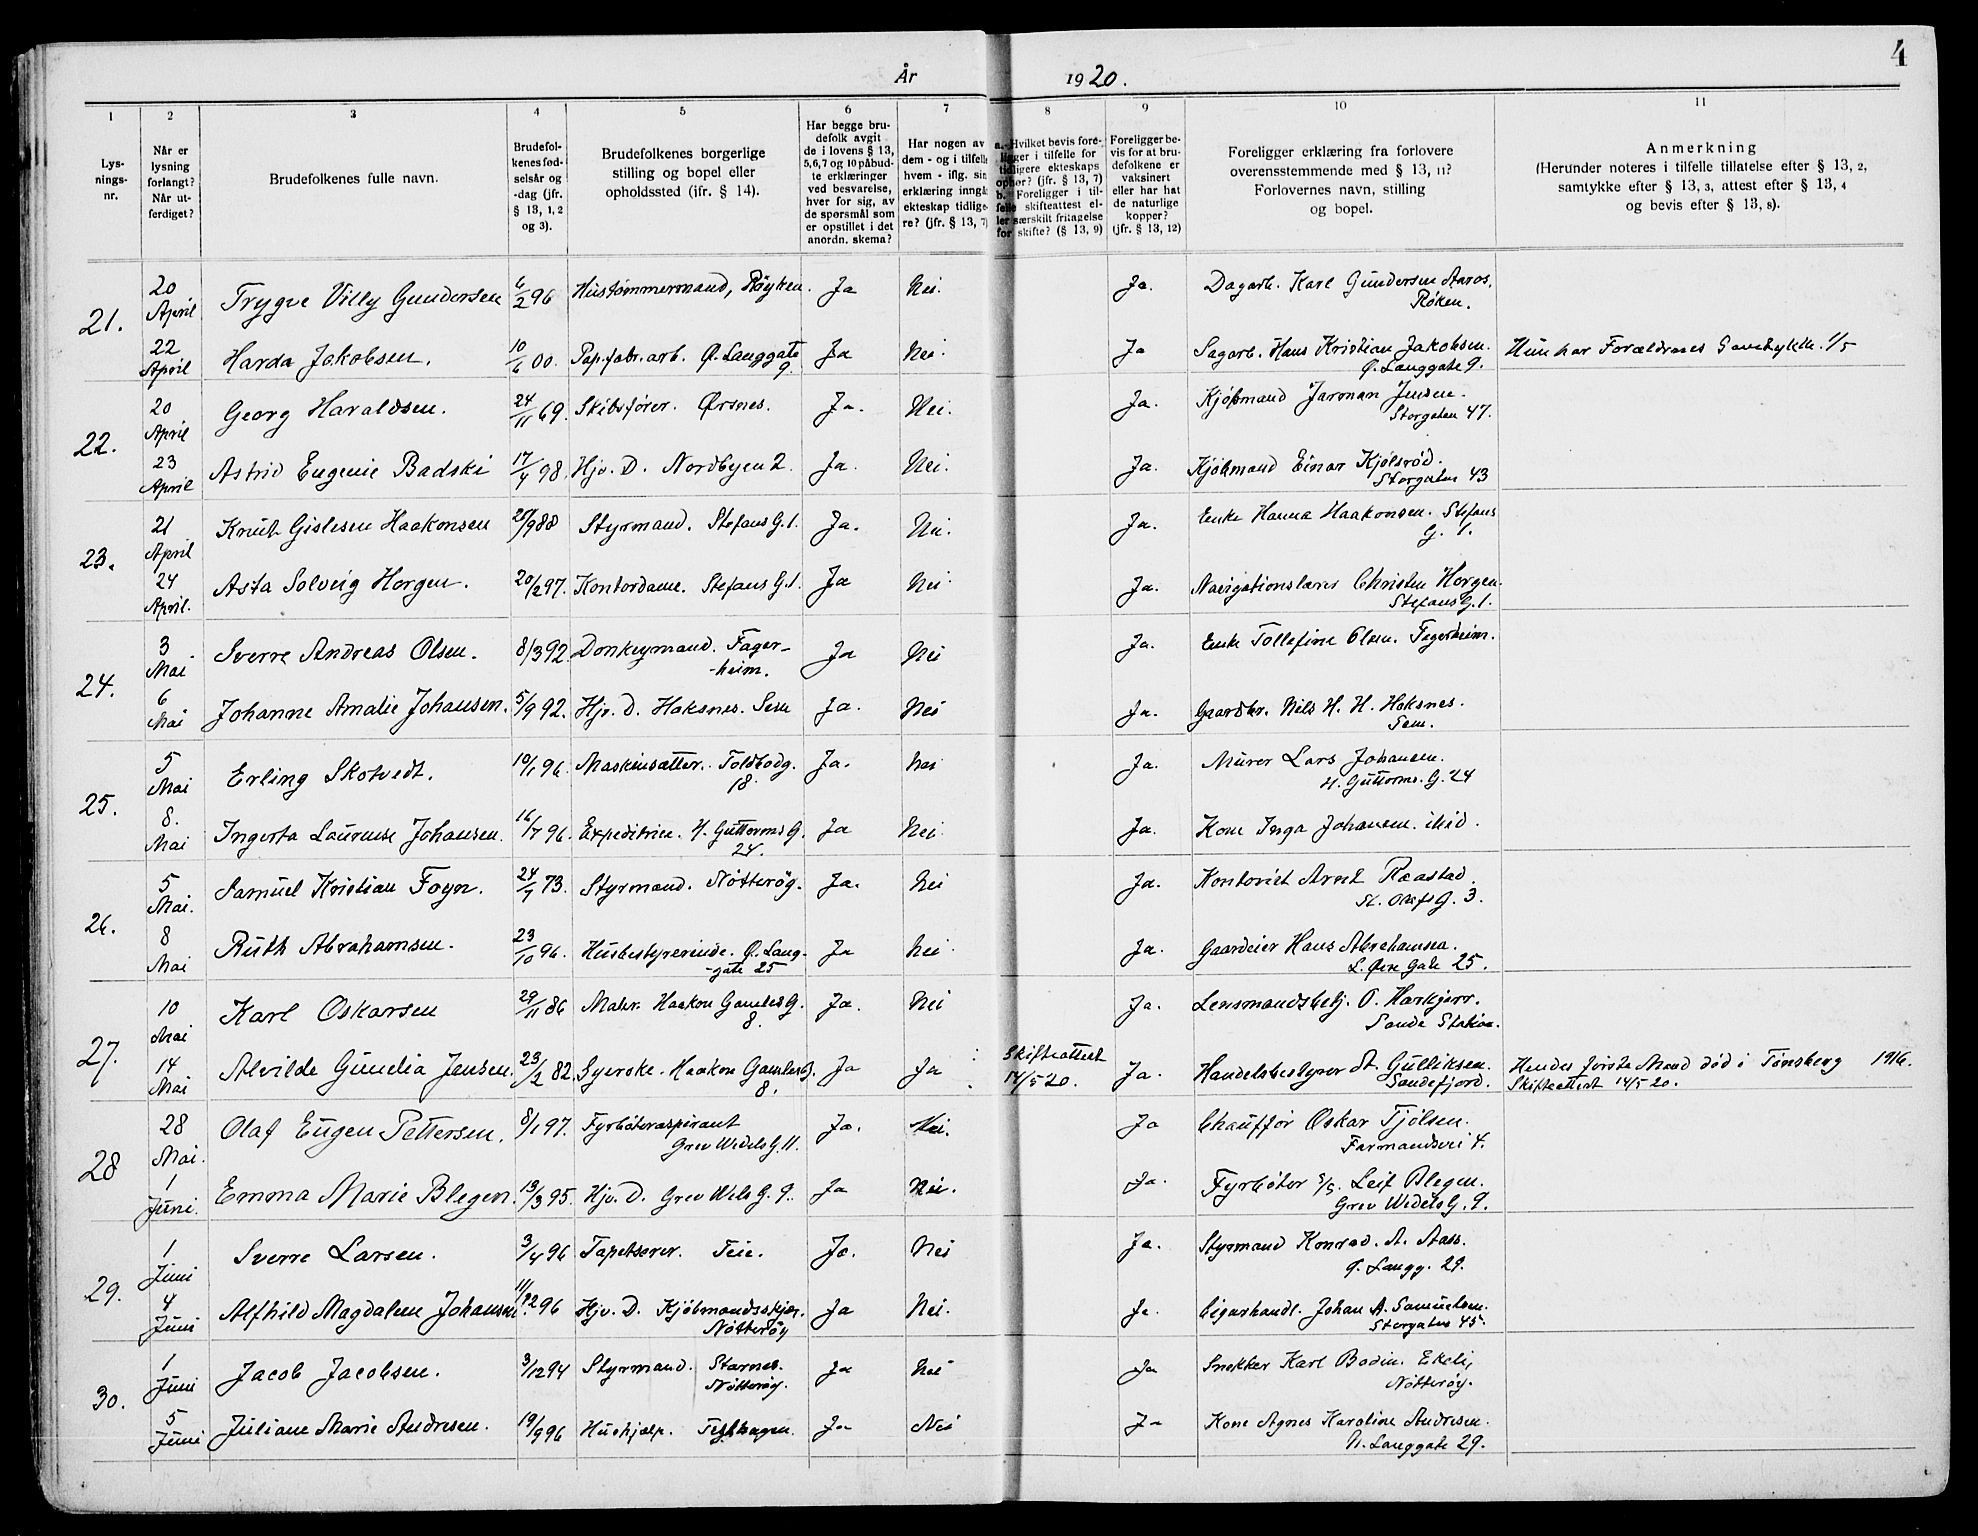 4
År 1920.
1 2 3 4 5 6 7 8 9 10 11
Lys-
nings-
nr.
Når er
lysning
forlangt?
Når ut-
ferdiget?
Brudefolkenes fulle navn.
Brudefol-
kenes fød-
selsår og
-dag (jfr.
§ 13, 1, 2
og 3).
Brudefolkenes borgerlige
stilling og bopel eller
opholdssted (ifr. § 14).
Har begge bru-
defolk avgit
de i lovens § 13,
5,6,7 og 10 påbud-
te erklæringer
ved besvarelse,
hver for sig, av
de spørsmål som
er opstillet i det
anordn. skema?
Har nogen av
dem - og i tilfelle
hvem - iflg. sin
erklæring inngå
ekteskap tidlige-
re? (jfr. § 13, 7)
a. Hvilket bevis fore-
ligger i tilfelle for
tidligere ekteskaps
ophør? (jfr. § 13, 7)
b. Foreligger i til-
felle skifteattest el-
ler særskilt fritagelse
for skifte? (§ 13, 9)
Foreligger be-
vis for at bru-
defolkene er
vaksinert
eller har hat
de naturlige
kopper?
(jfr. § 13, 12)
Foreligger erklæring fra forlovere
overensstemmende med § 13, 11?
Forlovernes navn, stilling
og bopel.
Anmerkning
(Herunder noteres i tilfelle tillatelse efter § 13, 2,
samtykke efter § 13, 3, attest efter § 13, 4
og bevis efter § 13, 8).
21. 20 April Trygve Villy Gundersen 6/2 96 Hustømmermand, Røyken. Ja Nei. Ja. Dagarb. Karl Gundersen Aaros,
Røken.
22 April Harda Jakobsen. 10/6 00. Pap.fabr.arb. Ø. Langgate 9. Ja Nei. Ja Sagarb. Hans Kristian Jakobsen. Hun har Forældrenes Samtykke. 1/5
Ø. Langgate 9.
22. 20 April Georg Haraldsen. 24/11 69. Skibsfører. Ørsnes. Ja. Nei. Ja. Kjøbmand Jarman Jensen.
Storgaten 47.
23 April Astrid Eugenie Badski 17/4 98. Hjv. D. Nordbyen 2. Ja. Nei. Ja. Kjøbmand Einar Kjølsrød.
Storgaten 43
23. 21 April Knut Gislesen Haakonsen /9 88 Styrmand. Stefans G. 1. Ja. Nei. Ja. Enke Hanna Haakonsen. Stefans
G. 1.
24 April. Asta Solveig Horgen. 20/2 97. Kontordame. Stefans G. 1. Ja Nei Ja. Navigationslærer Christen Horgen.
Stefans G. 1.
24. 3 Mai Sverre Andreas Olsen. 8/3 92 Donkeymand. Fager-
-heim. Ja Nei Ja. Enke Tollefine Olsen. Fagerheim.
6 Mai Johanne Amalie Johansen. 5/9 92. Hjv. D. Haksnes. Sem Ja. Nei Ja. Gaardbr. Nils H. H. Haksnes.
Sem.
25. 5 Mai Erling Skotvedt. 10/1 96. Maskinsætter. Toldbodg.
18. Ja. Nei Ja. Murer Lars Johansen.
H. Guttorms. G. 24
8. Mai Ingerta Laurense Johansen. 16/7 96. Expeditrice. H. Guttorms G.
24. Ja Nei Ja. Kone Inga Johansen. ibid.
26. 5 Mai. Samuel Kristian Foyn. 24/7 73. Styrmand. Nøtterøy. Ja. Nei Ja. Kontorist Arnt Raastad.
St. Olafs G. 3.
8 Mai Ruth Abrahamsen. 23/10 96. Husbestyrerinde. Ø. Lang-
-gate 25 Ja Nei Ja. Gaardeier Hans Abrahamsen.
L. Øvre Gate 25.
27. 10 Mai Karl Oskarsen 29/11 86 Matr. Haakon Gamles G.
8. Ja. Nei Ja. Lensmandsbetj. O. Harkjerr.
Sande Station.
14 Mai Alvilde Gunelia Jensen. 23/2 82. Syerske. Haakon Gamles G.
8. Ja Ja Skifteattest
14/5 20. Ja. Handelsbestyrer A. Gulliksen.
Sandefjord. Hendes første Mand død i Tønsberg 1916.
Skifteattest 14/5 20.
28 28 Mai. Olaf Eugen Pettersen. 8/1 97. Fyrbøteraspirant
Grev Wedels G. 11. Ja. Nei. Ja Chauffør Oskar Tjølsen.
Farmandsvei 4.
1 Juni. Emma Marie Blegen. 13/3 95. Hjv. D. Grev Wels G. 9. Ja Nei. Ja. Fyrbøter Leif Blegen.
Grev Wedels G. 9.
29. 1 Juni Sverre Larsen. 3/4 96 Tapetserer. Teie. Ja. Nei Ja. Styrmand Konrad. A. Aass.
Ø. Langg. 29.
4 Juni Alfhild Magdalene Johansen 11/12 96 Hjv. D. Kjøbmandsskjær.
Nøtterøy Ja Nei. Ja. Cigarhandl. Johan A. Samuelsen.
Storgaten 45.
30. 1 Juni Jacob Jacobsen. 3/12 94 Styrmand. Starnes.
Nøtterøy. Ja Nei Ja Snekker Karl Bodin. Ekeli,
Nøtterøy.
5 Juni Juliane Marie Andresen. 19/9 96 Hushjælp. Ja Nei Ja Kone Agnes Karoline Andresen.
N. Langgate 29.